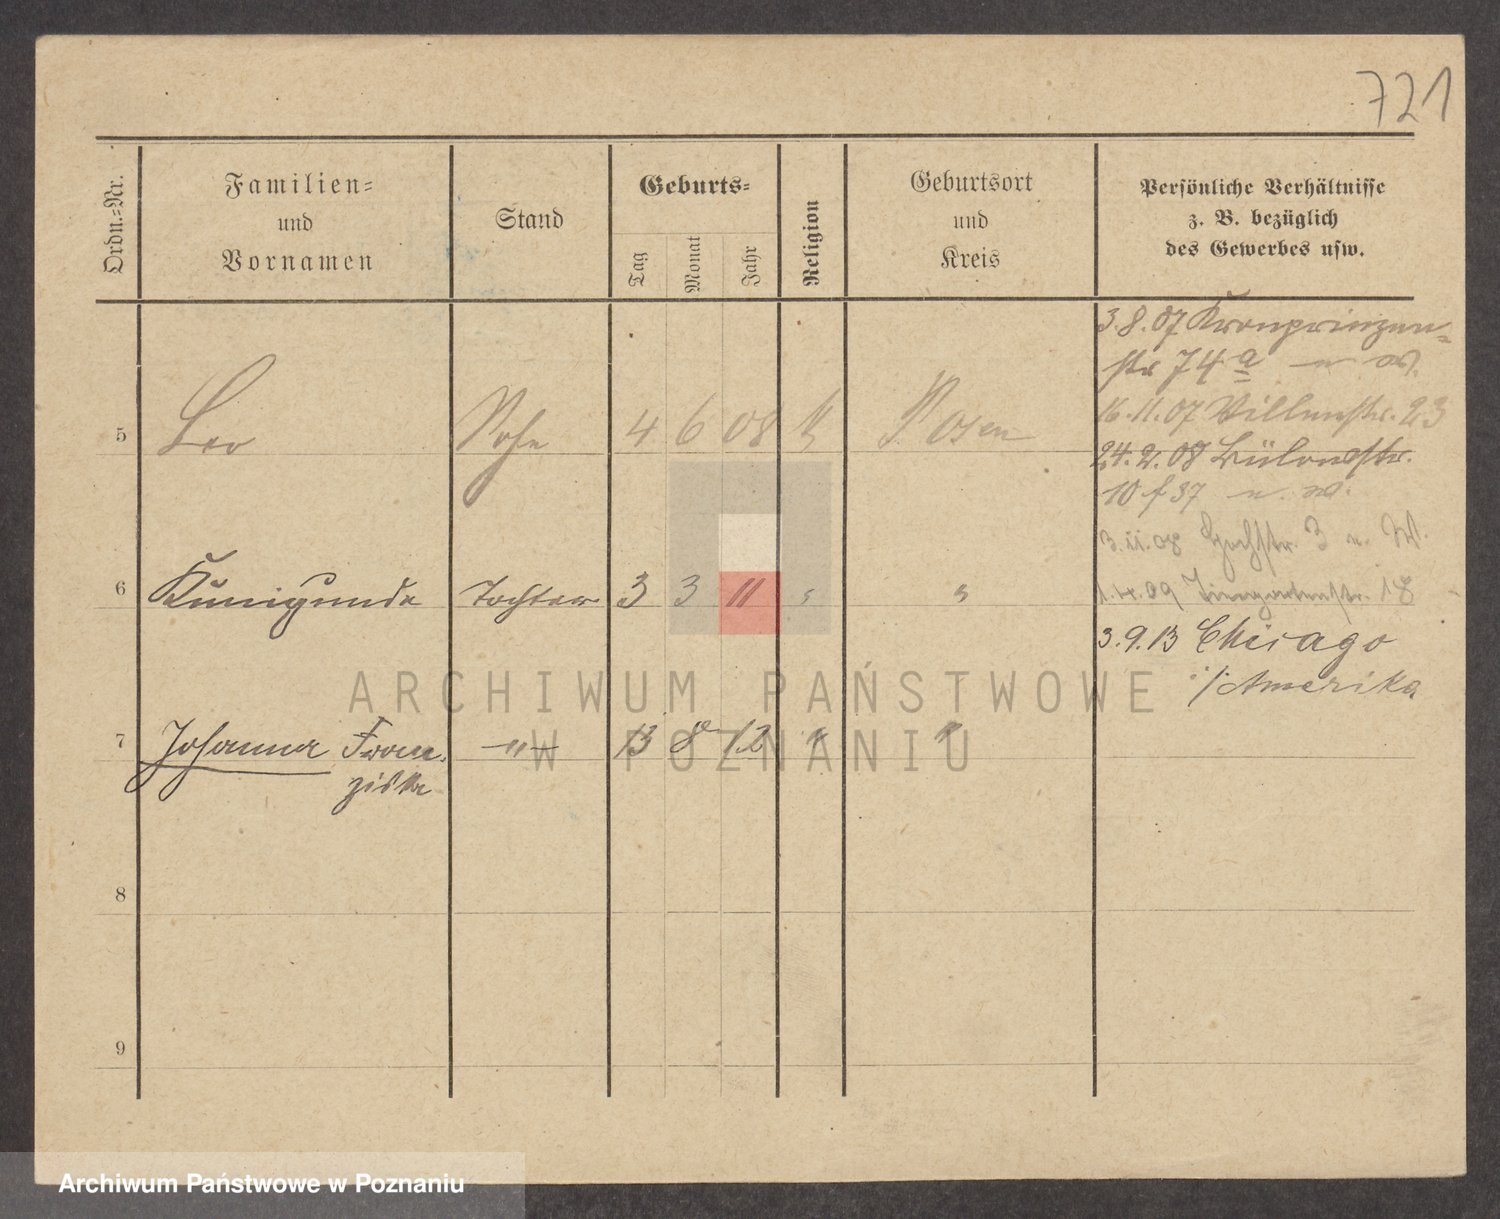 721
Ordn.=Nr.
Familien=
und
Vornamen
Stand
Geburts=
Tag
Monat
Jahr
Religion
Geburtsort
und
Kreis
Persönliche Verhältnisse
z. B. bezüglich
des Gewerbes usw.
5 Leo Sohn 4 6 08 k Posen
3.8.07 Kronprinzen=
str 74a u W.
16.11.07 Villenstr. 23
24.2.08 Bülowstr.
10 f 37 u. W.
3.11.08 Hochstr. 3 u. W.
1.4.09 Tiergartenstr. 18
6 Kunigunde Tochter 3 3 11 " "
3.9.13 Chicago
/Amerika
7 Johanna Fran-
ziska -"- 13 8 12 " "
8
9
ARCHIWUM PAŃSTWOWE
W POZNANIU
Archiwum Państwowe w Poznaniu